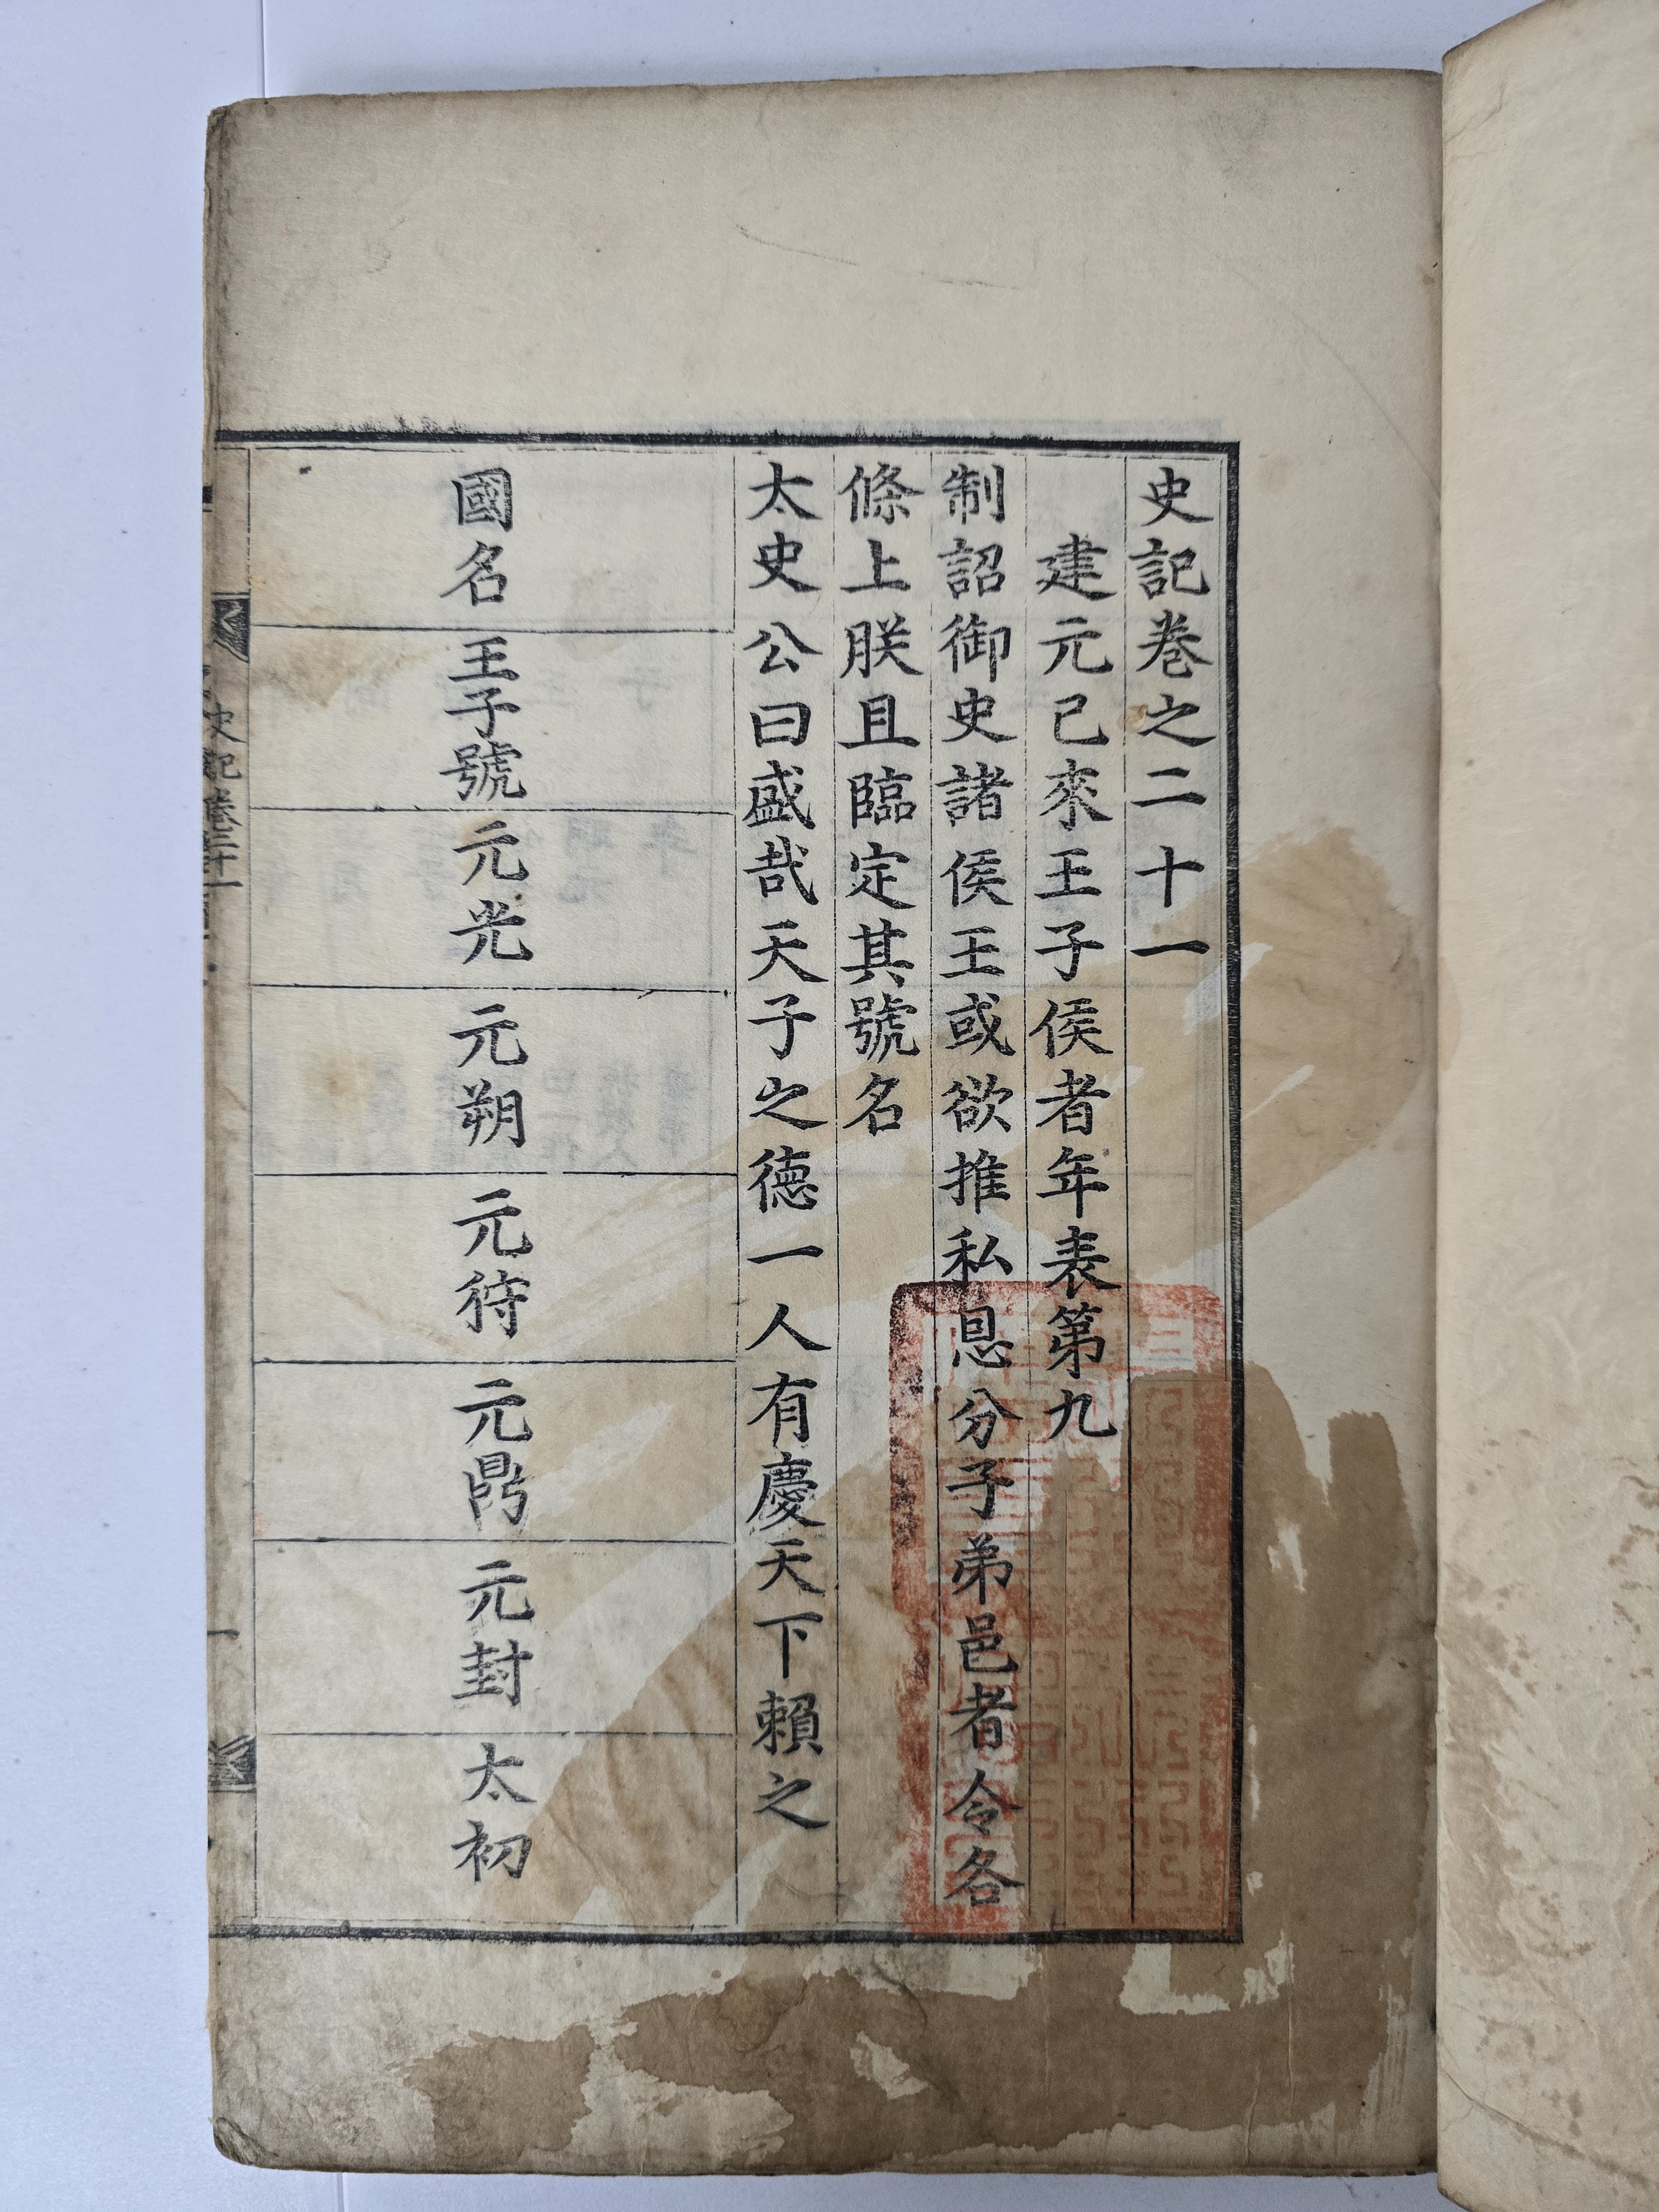 史記卷之二十一
建元已來王子侯者年表第九
制詔御史諸侯王或欲推私恩分子弟邑者令各
條上朕且臨定其號名
太史公曰盛哉天子之德一人有慶天下賴之
國名
王子號
元光
元朔
元狩
元鼎
元封
太初
史記卷二十一
一